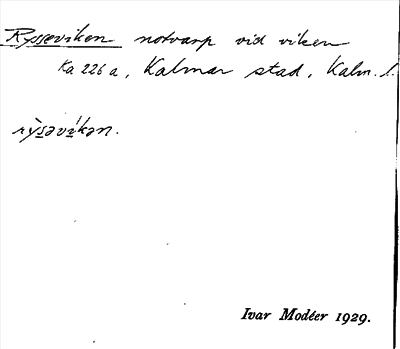 Rysseviken notvarp vid viken
Ka 226 a, Kalmar stad, Kalm. l.
rỳsəvíkən.
Ivar Modéer 1929.